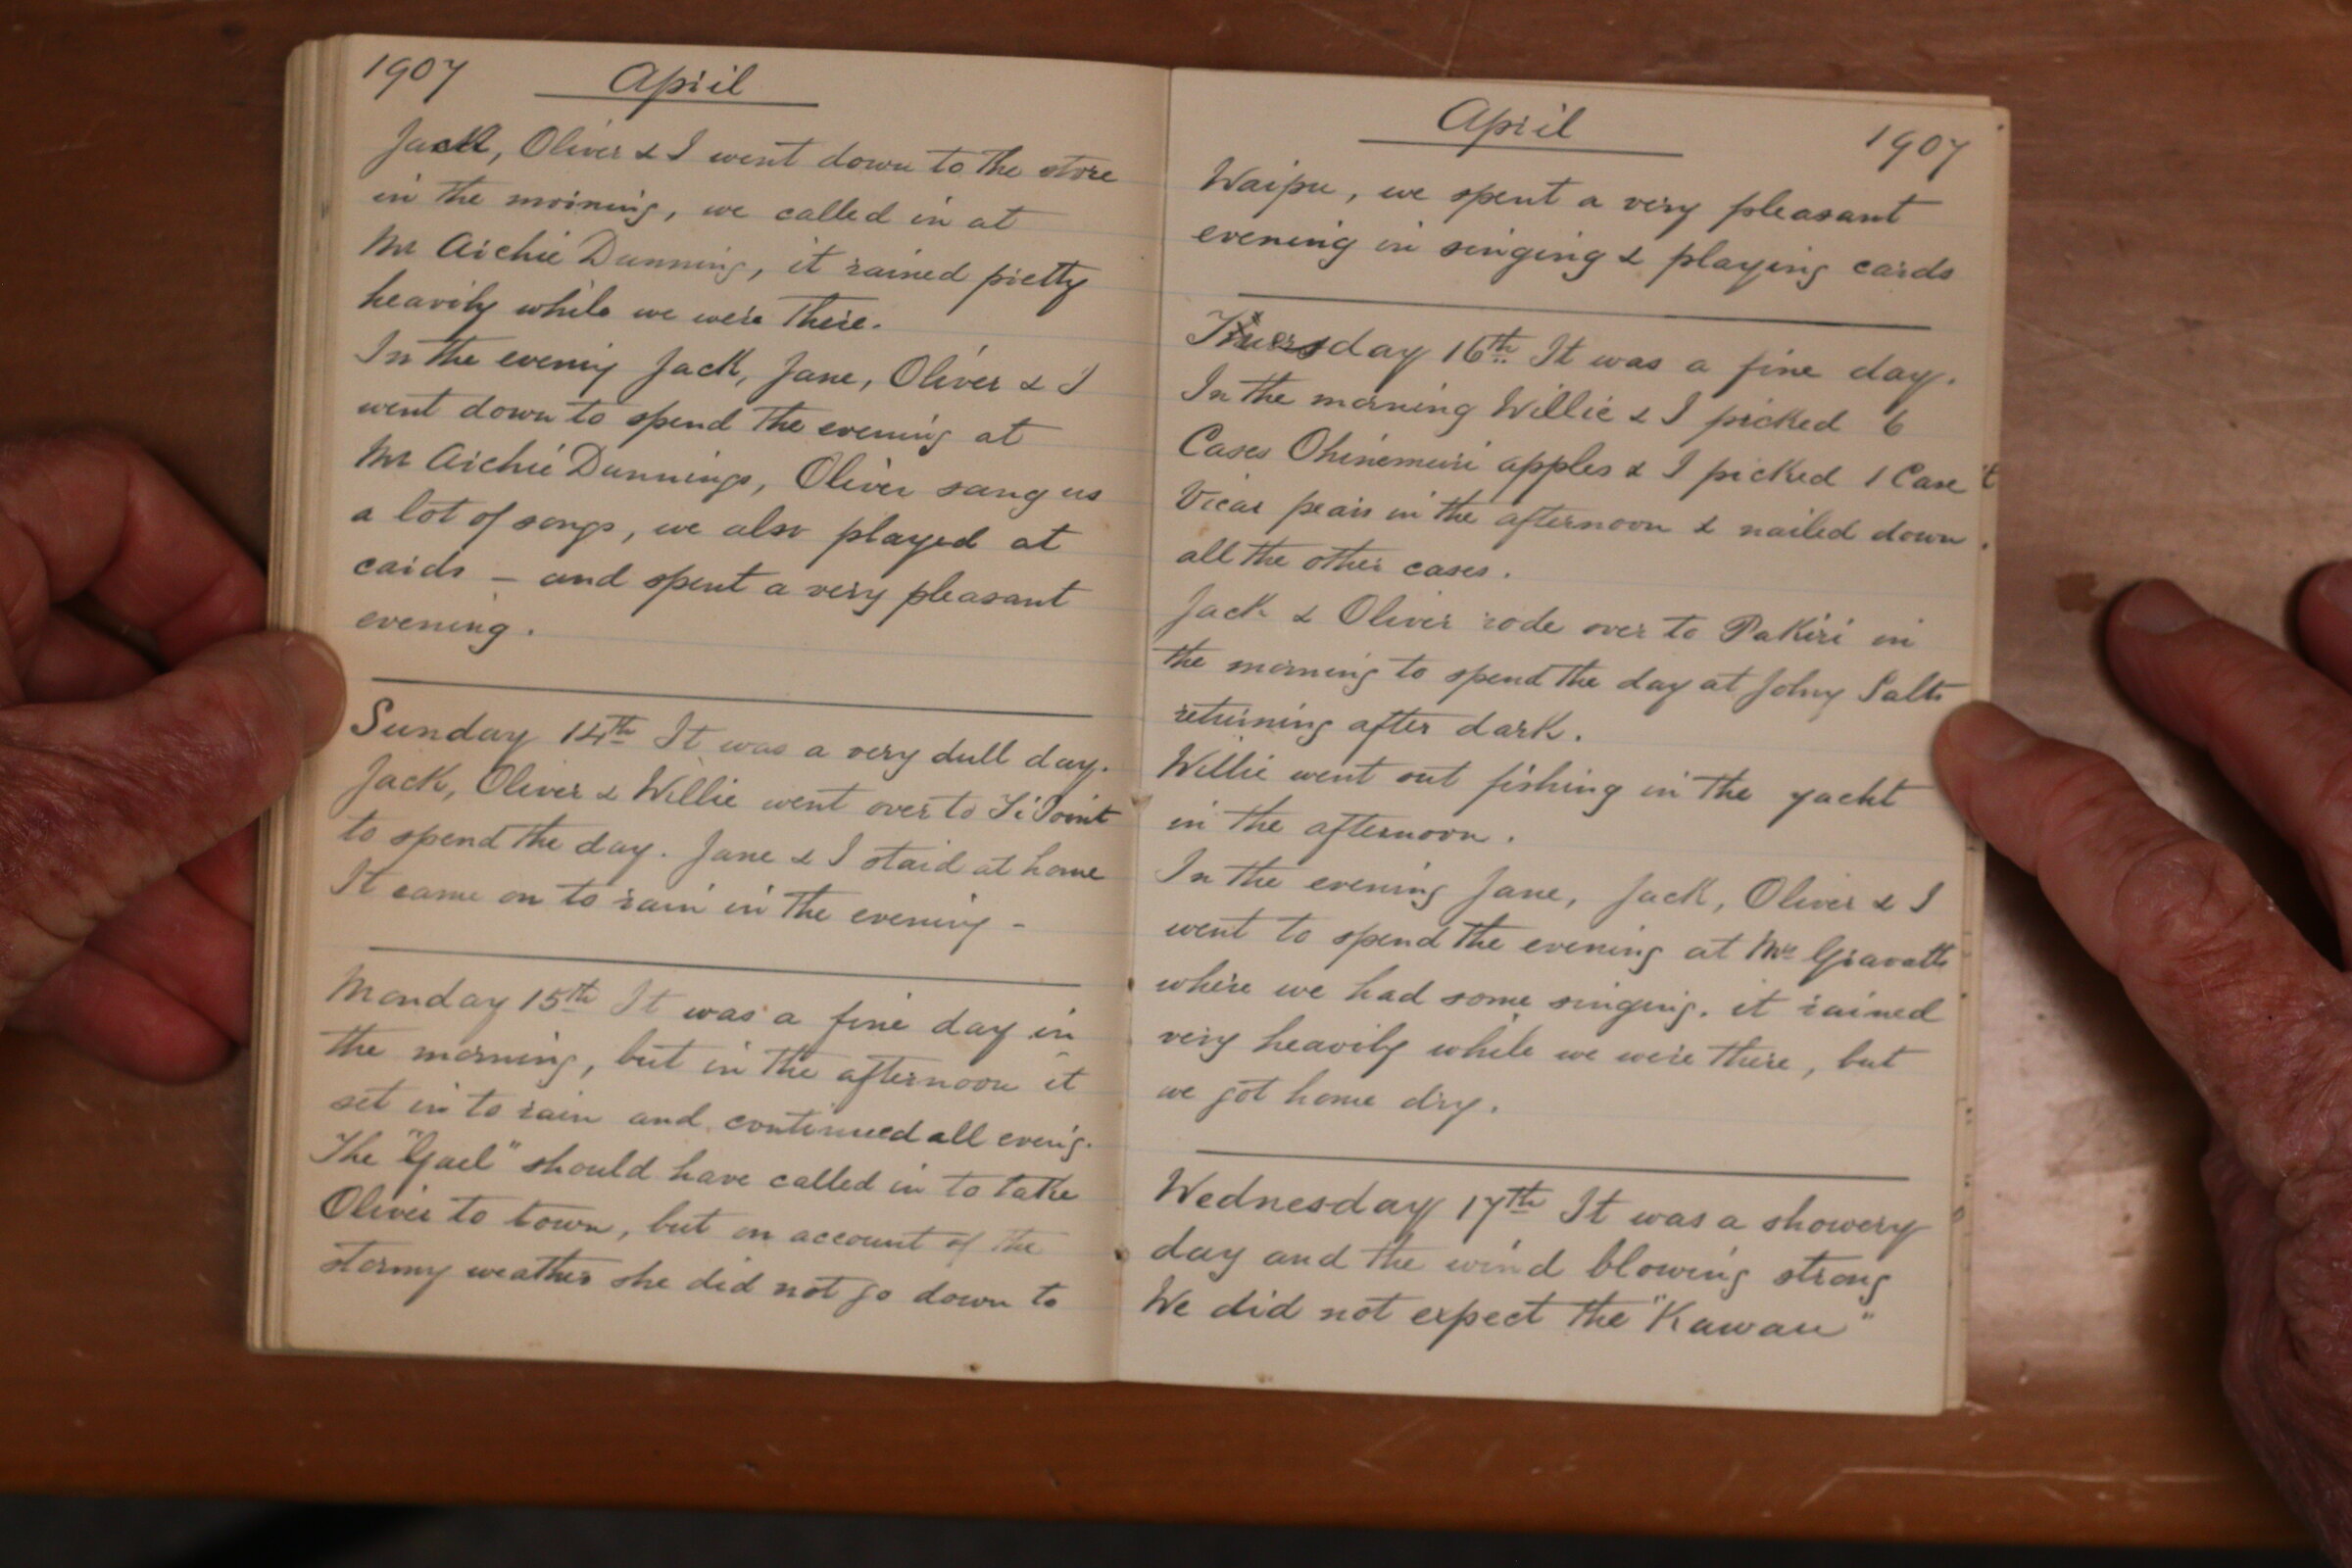 1907 April
Jack, Oliver & I went down to the store
in the morning, we called in at
Mr Archie Dunning, it rained pretty
heavily while we were there.
In the evenig Jack, Jane, Oliver & I
went down to spend the evening at
Mr Archie Dunnings, Oliver sang us
a lot of songs, we also played at
cards – and spent a very pleasant
evening.
Sunday 14th It was a very dull day.
Jack, Oliver & Willie went over to Ti Point
to spend the day. Jane & I staid at home
It came on to rain in the evening -
Monday 15th It was a fine day in
the morning, but in the afternoon it
set in to rain and continued all eveng.
The "Gael" should have called in to take
Oliver to town, but on account of the
stormy weather she did not go down to
April 1907
Waipu, we spent a very pleasant
evening in singing & playing cards
Tuesday 16th It was a fine day.
In the morning Willie & I picked 6
Cases Ohinemuri apples & I picked 1 Case
Vicar pears in the afternoon & nailed down
all the other cases.
Jack & Oliver rode over to Pakiri in
the morning to spend the day at Johny Salts
returning after dark.
Willie went out fishing in the yacht
in the afternoon.
In the evening Jane, Jack, Oliver & I
went to spend the evening at Gravatts
where we had some singing. it rained
very heavily while we were there, but
we got home dry.
Wednesday 17th It was a showery
day and the wind blowing strong
We did not expect the "Kawau"